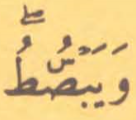 وَيَبْصُۜطُۖ